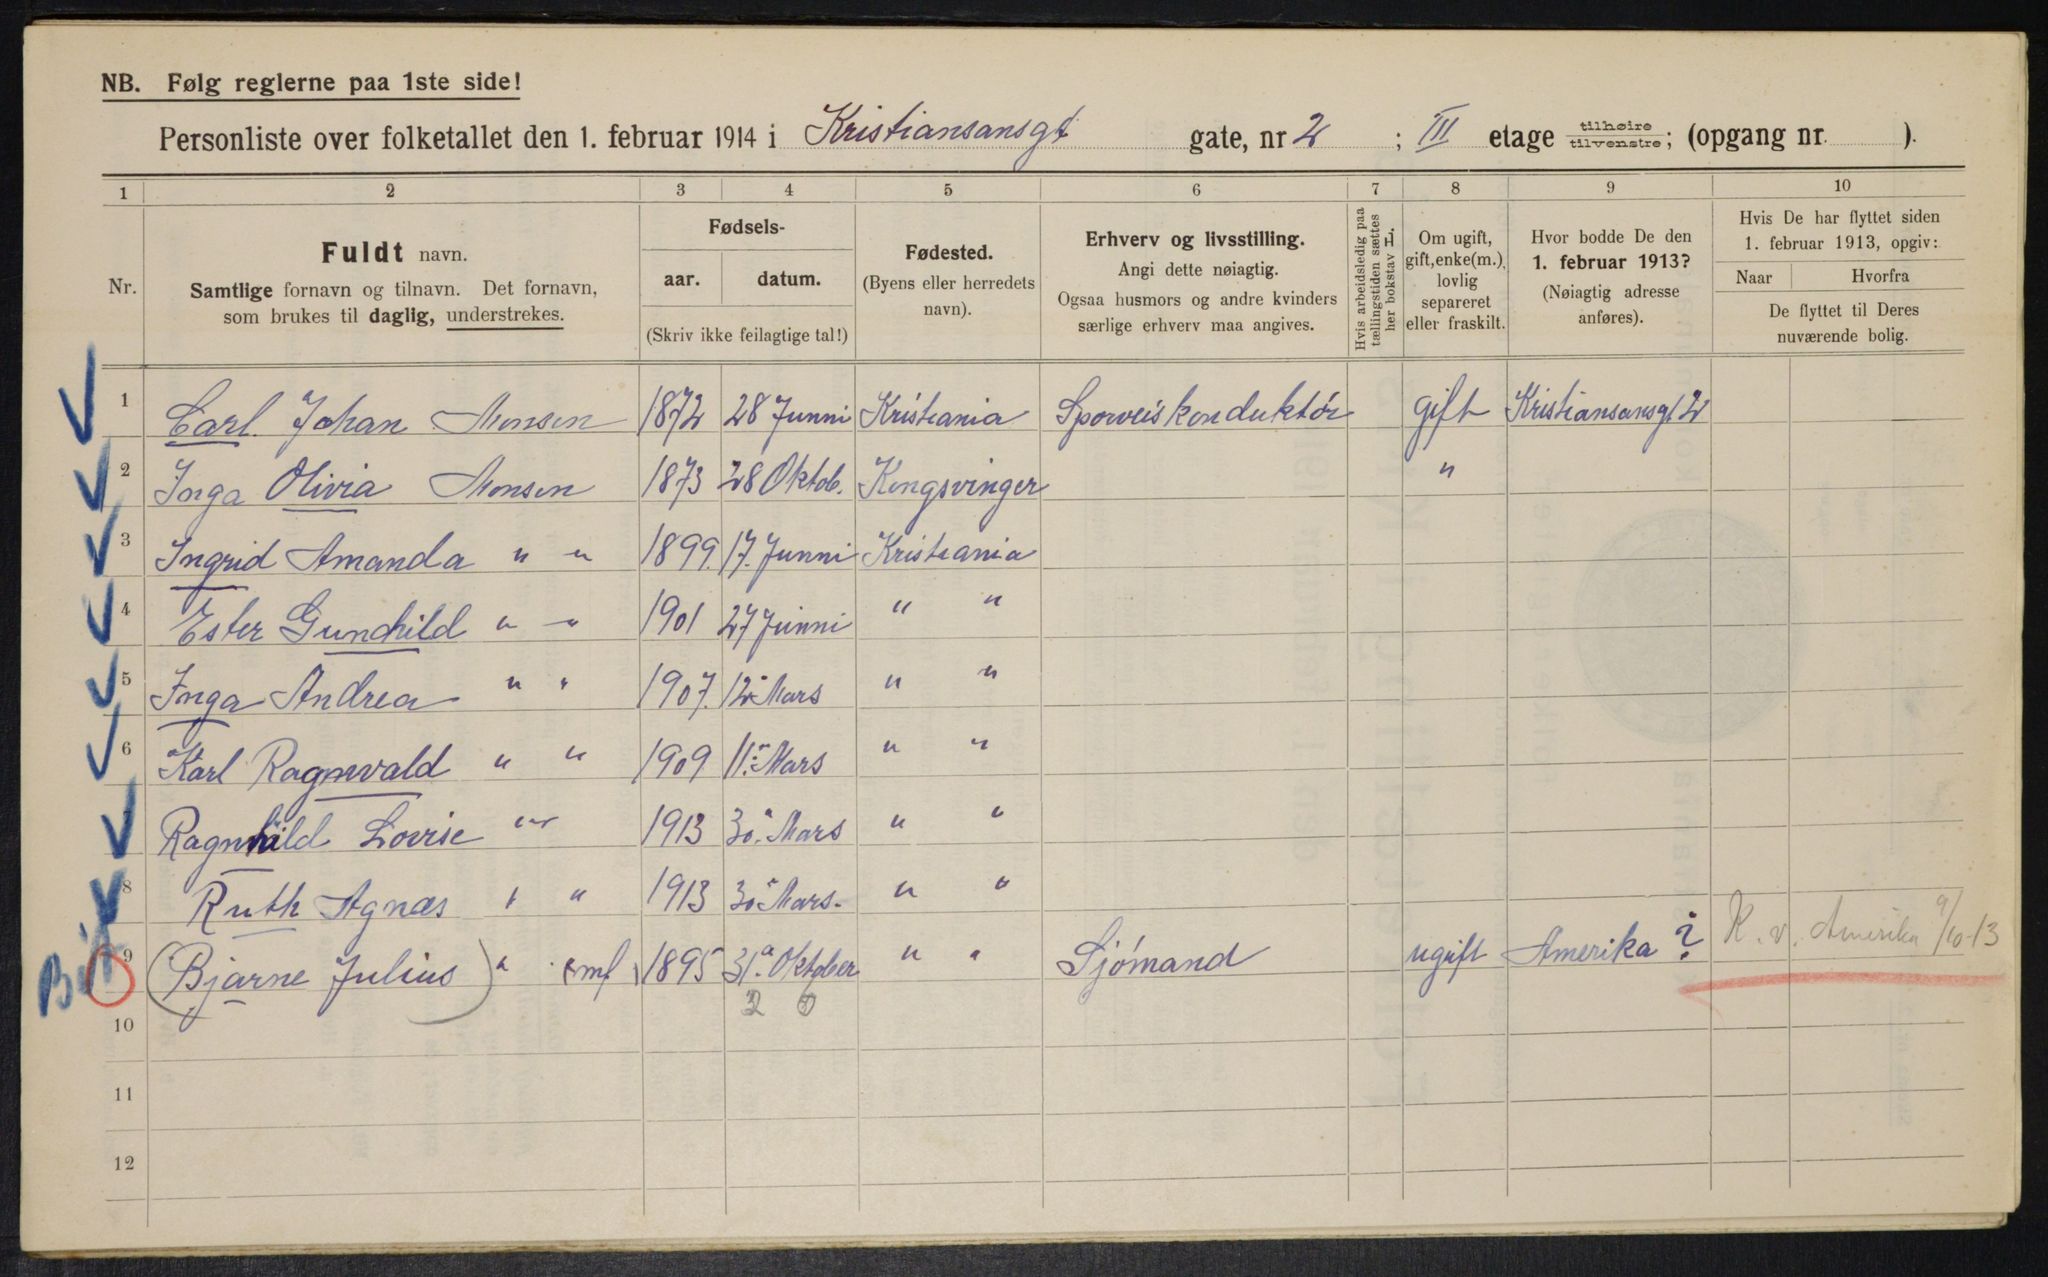 NB. Følg reglerne paa 1ste side!
Personliste over folketallet den 1. februar 1914 i Kristiansansgt gate, nr 2 ; III etage tilhøire tilvenstre; (opgang nr. ).
1 2 3 4 5 6 7 8 9 10
Nr.
Fuldt navn.
Samtlige fornavn og tilnavn. Det fornavn,
som brukes til daglig, understrekes.
Fødsels-
aar. datum.
(Skriv ikke feilagtige tal!)
Fødested.
(Byens eller herredets
navn).
Erhverv og livsstilling.
Angi dette nøiagtig.
Ogsaa husmors og andre kvinders
særlige erhverv maa angives.
Hvis arbeidsledig paa
tællingstiden sættes
her bokstav L.
Om ugift,
gift, enke(m.),
lovlig
separeret
eller fraskilt.
Hvor bodde De den
1. februar 1913?
(Nøiagtig adresse
anføres).
Hvis De har flyttet siden
1. februar 1913, opgiv:
Naar Hvorfra
De flyttet til Deres
nuværende bolig.
1 Carl Johan Monsen 1872 28 Junni Kristiania Sporveiskonduktór gift Kristiansansgt 2
2 Inga Olivia Monsen 1873 28 Oktob. Kongsvinger "
3 Ingrid Amanda " " 1899. 17. Junni Kristiania
4 Ester Gunchild " " 1901 27 Junni " "
5 Inga Andrea " " 1907. 12 Mars " "
6 Karl Ragnvald " " 1909 11. Mars " "
7 Ragnhild Lovise " " 1913 30. Mars " "
8 Ruth Agnæs " " 1913 30 Mars. " "
9 (Bjarne Julius) " " mf 1895 31. Oktober " " Sjómand ugift Amerika ? K. v. Amerika 9/10-13
2 0
10
11
12